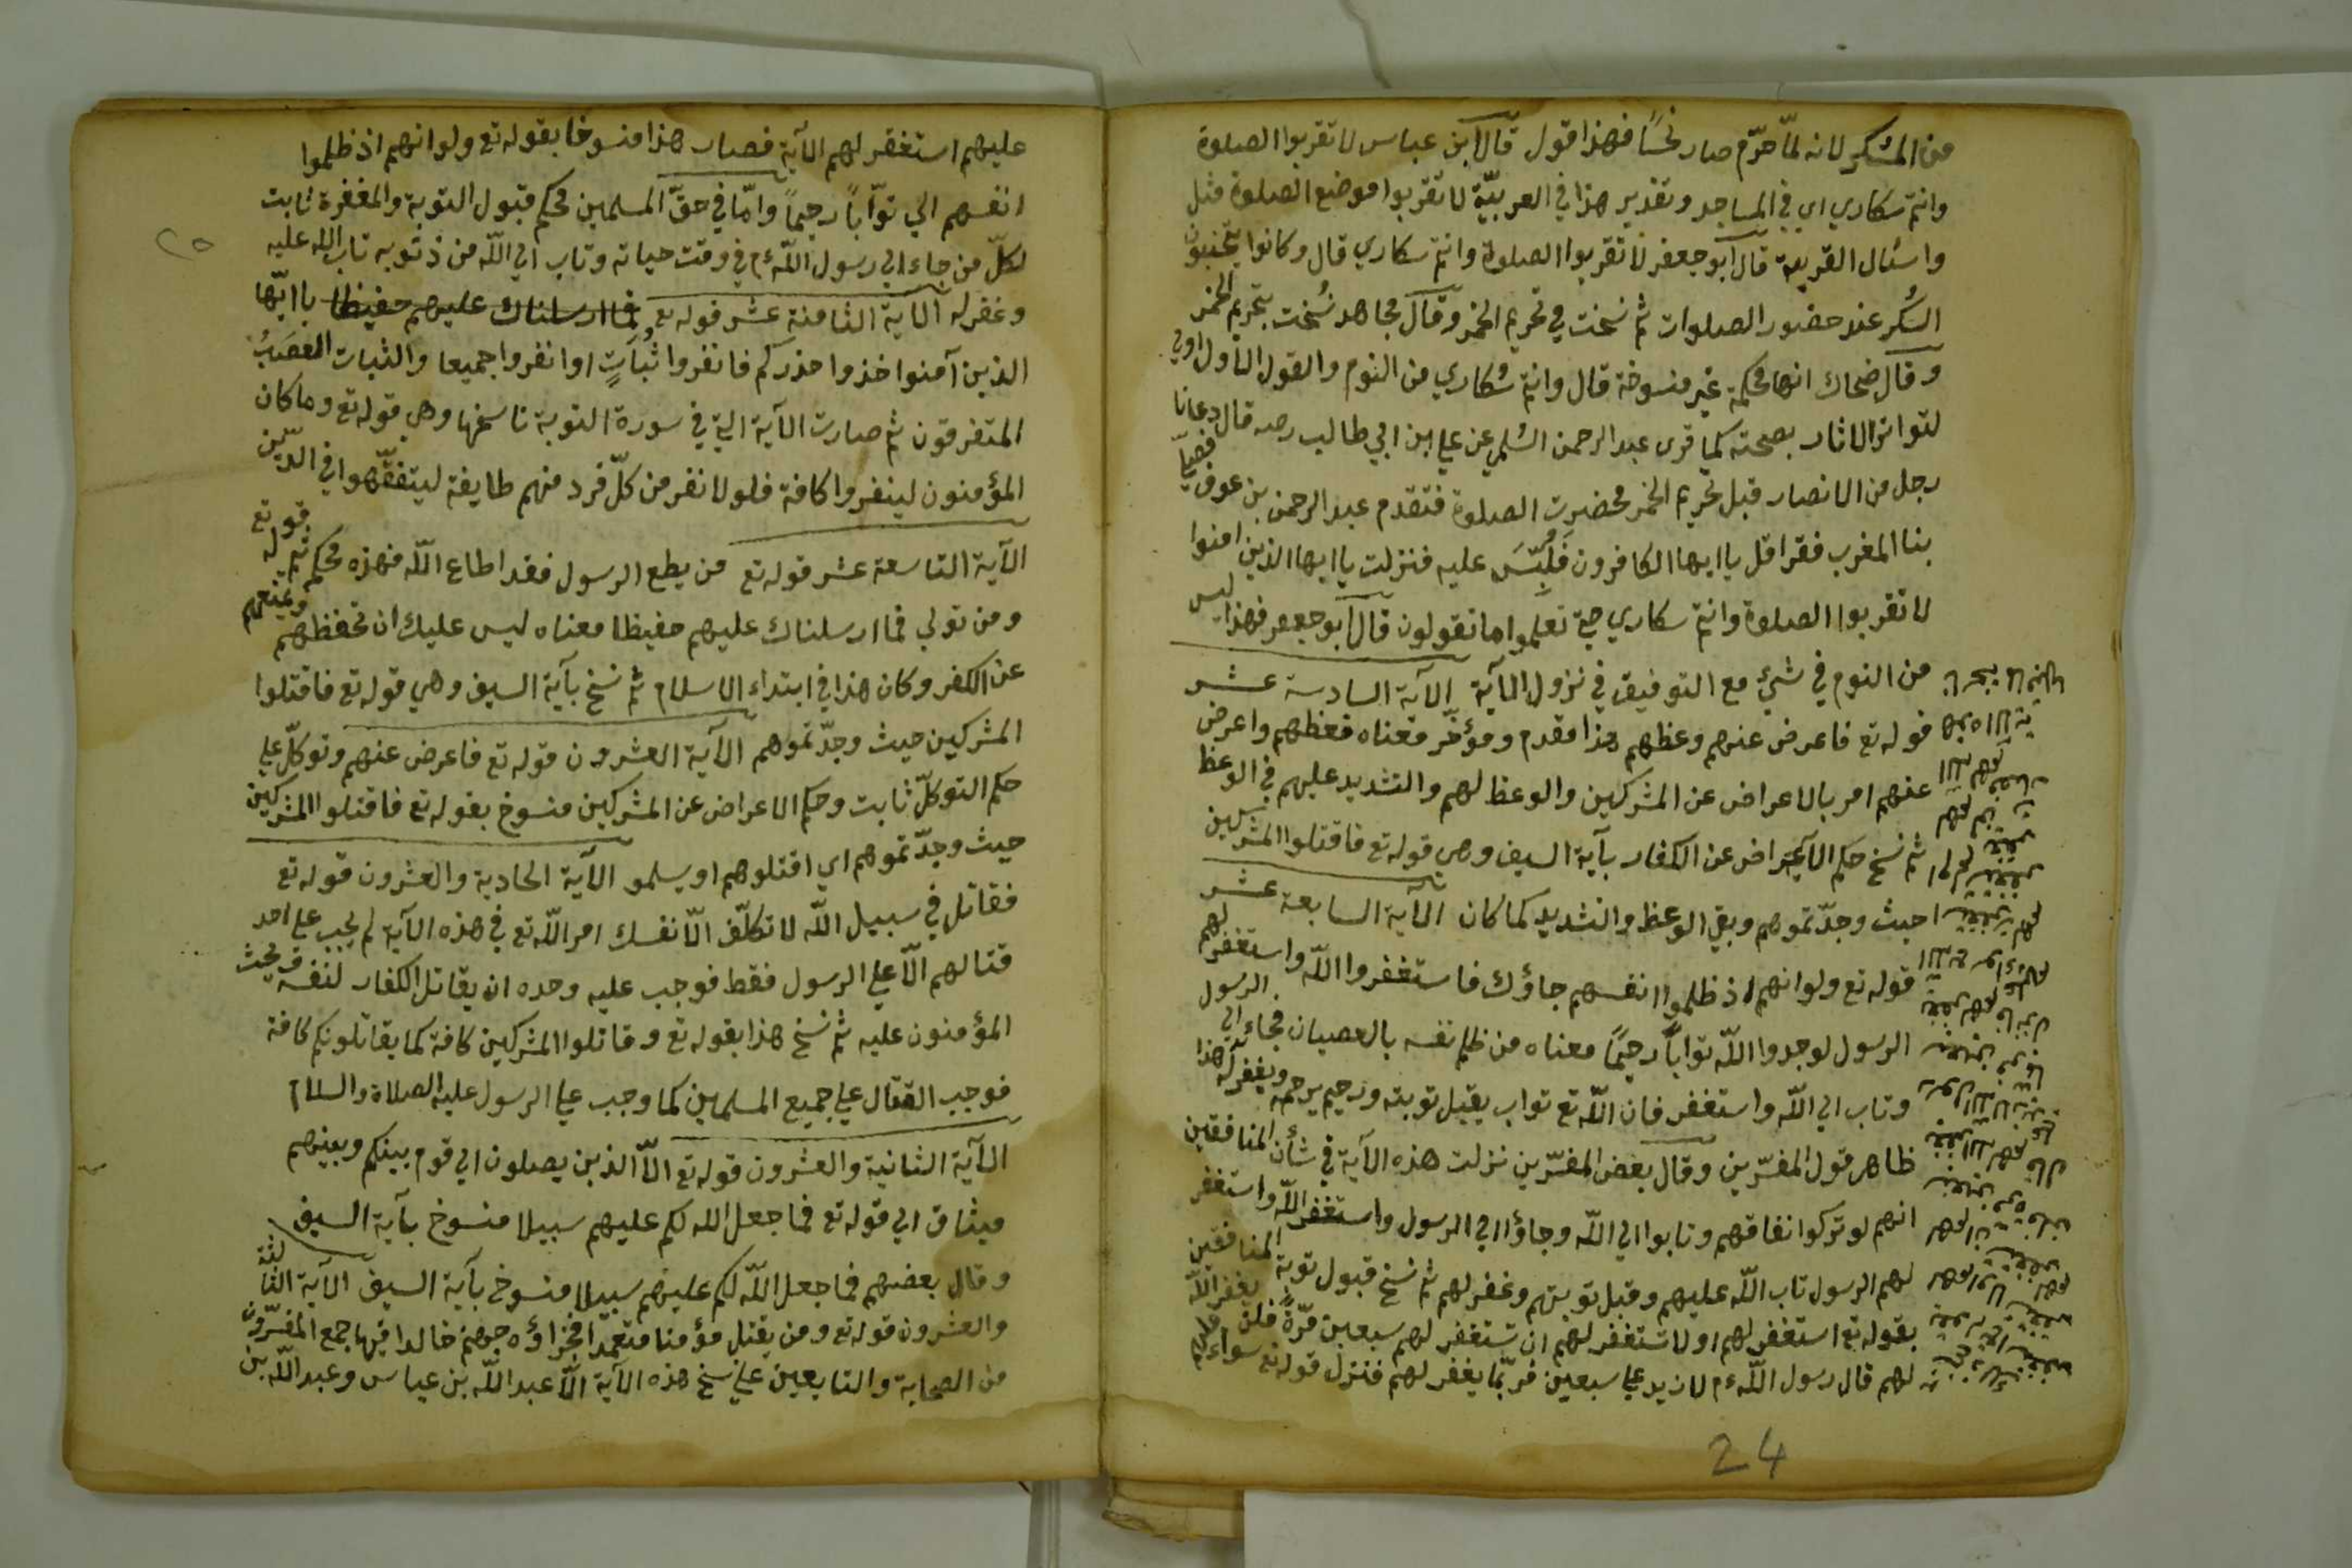 من المسكر لانه لمّا حرّم صار نجسًا فهذا قول قال ابن عباس لا تقربوا الصلوة
وانتم سكاري اي في المساجد وتقدير هذا في العربيّة لا تقربوا موضع الصلوة مثل
واسئال القرية قال ابو جعفر لا تقربوا الصلوة وانتم سكاري قال وكانوا يجتنبون
السُكر عند حضور الصلوات ثم نسخت في تحريم الخمر وقال مجاهد نُسخت بتحريم الخمر
وقال ضحاك انها محكمة غير منسوخة قال وانتم سُكاري من النوم والقول الاول اولي
لتواتر الاثار بصحته كما قرى عبد الرحمن السُلمي عن علي ابن ابي طالب رضه قال دعانا
رجل من الانصار قبل تحريم الخمر فحضرت الصلوة فتقدم عبد الرحمن بن عوف فصلّي
بنا المغرب فقرا قل يا ايها الكافرون فلُبِّسَ عليه فنزلت يا ايها الذين امنوا
لا تقربوا الصلوة وانتم سكاري حتي تعلموا ما تقولون قال ابو جعفر فهذا ليس
من النوم في شئ مع التوفيق في نزول الآية الآية السادسة عشر
قوله تع فاعرض عنهم وعظهم هذا مقدم ومؤخّر معناه فعظهم واعرض
عنهم امر بالاعراض عن المشركين والوعظ لهم والتشديد عليهم في الوعظ
ثم نسخ حكم الاعراض عن الكفار بآية السيف وهي قوله تع فاقتلوا المشركين
حيث وجدّتموهم وبقي الوعظ والتشديد كما كان الآية السابعة عشر
قوله تع ولو انهم اذ ظلموا انفسهم جاؤك فاستغفروا اللّه واستغفر لهم
الرسول لوجدوا اللّه توابًا رحيمًا معناه من ظلم نفسه بالعصيان فجاء الي الرسول
وتاب الي اللّه واستغفر فان اللّه تع تواب يقبل توبته ورحيم يرحمه ويغفر له هذا
ظاهر قول المفسّرين وقال بعض المفسّرين نزلت هذه الآية في شأن المنافقين
انهم لو تركوا نفاقهم وتابوا الي اللّه وجاؤا الي الرسول واستغفر اللّه واستغفر
لهم الرسول تاب اللّه عليهم وقبل توبتهم وغفر لهم ثم نسخ قبول توبة المنافقين
بقوله تع استغفر لهم او لا تستغفر لهم ان تستغفر لهم سبعين مرّةً فلن يغفر اللّه
لهم قال رسول اللّه عم لازيد علي سبعين فربّما يغفر لهم فنزل قوله تع سواء عليهم
24
عليهم استغفر لهم الآية فصار هذا منسوخا بقوله تع ولو انهم اذ ظلموا
انفسهم الي توّاباً رحيماً وامّا في حقّ المسلمين محكم قبول التوبة والمغفرة ثابت
لكلّ من جاء الي رسول اللّه عم في وقت حياته وتاب الي اللّه من ذنوبه تاب الله عليه
وغفر له الآية الثامنة عشر قوله تع فما ارسلناك عليهم حفيظا يا ايّها
الذين آمنوا خذوا حذركم فانفروا ثُباتٍ اوانفروا جميعا والثبات العصَبُ
المتفرقون ثم صارت الآية التي في سورة التوبة ناسخها وهي قوله تع وما كان
المؤمنون لينفروا كافة فلولا نفر من كلّ فرد منهم طايفة ليتفقّهوا في الدّين
الآية التاسعة عشر قوله تع من يطع الرسول فقد اطاع اللّه فهذه محكم ثم قوله تع
ومن تولي فما ارسلناك عليهم حفيظا معناه ليس عليك ان تحفظهم وتمنعهم
عن الكفر وكان هذا في ابتداء الاسلام ثم نسخ بآية السيف وهي قوله تع فاقتلوا
المشركين حيث وجدّتموهم الآية العشرون قوله تع فاعرض عنهم وتوكلّ علي
حكم التوكلّ ثابت وحكم الاعراض عن المشركين منسوخ بقوله تع فاقتلوا المشركين
حيث وجدّتموهم اي اقتلوهم او يسلمو الآية الحادية والعشرون قوله تع
فقاتل في سبيل اللّه لا تكلّف الّا نفسك امر اللّه تع في هذه الآية لم يجب علي احد
قتالهم الّا علي الرسول فقط فوجب عليه وحده ان يقاتل الكفار لنفسه ويحث
المؤمنون عليه ثم نسخ هذا بقوله تع وقاتلوا المشركين كافة كما يقاتلونكم كافة
فوجب القتال علي جميع المسلمين كما وجب علي الرسول عليه الصلاة والسلام
الآية الثانية والعشرون قوله تع الّا الذين يصلون الي قوم بينكم وبينهم
ميثاق الي قوله تع فما جعل الله لكم عليهم سبيلا منسوخ بآية السيف
وقال بعضهم فما جعل اللّه لكم عليهم سبيلا منسوخ بآية السيف الآية الثالثة
والعشرون قوله تع ومن يقتل مؤمنا متعمّدا فجزاؤه جهنم خالدا فيها جمع المفسّرون
من الصحابة والتابعين علي نسخ هذه الآية الّا عبد اللّه بن عباس وعبد اللّه بن